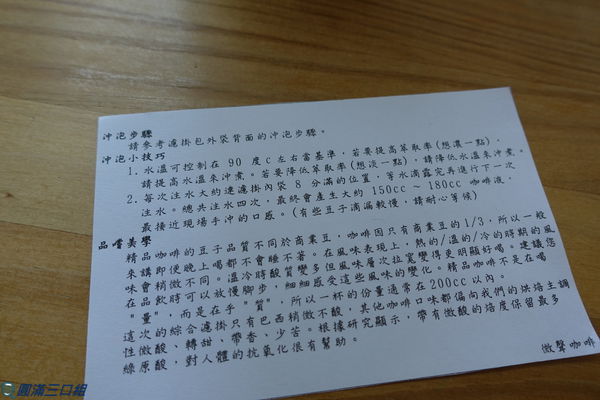 沖泡步驟
請參考濾掛包外袋背面的沖泡步驟。
沖泡小技巧
1. 水溫可控制在 90 度c左右當基準，若要提高萃取率(想濃一點)，
請提高水溫來沖煮。若要降低萃取率(想淡一點)，請降低水溫來沖煮。
2. 每次注水大約達濾掛內袋 8 分滿的位置，等水滴露完再進行下一次
注水。總共注水四次，最終會產生大約 150cc ~ 180cc 咖啡液，
最接近現場手沖的口感。(有些豆子滴漏較慢，請耐心等候)
品嚐美學
精品咖啡的豆子品質不同於商業豆，咖啡因只有商業豆的1/3，所以一般
來講即便晚上喝都不會睡不著。在風味表現上，熱的/溫的/冷的時期的風
味會稍微不同。溫冷時酸質變多但風味層次拉寬變得更明顯好喝。建議您
在品飲時可以放慢腳步，細細感受這些風味的變化。精品咖啡不是在喝
"量"，而是在乎"質"，所以一杯的份量通常在200cc以內。
這次的綜合濾掛只有巴西稍微不酸，其他咖啡口味都偏向我們的烘焙主調
性微酸、轉甜、帶香、少苦。根據研究顯示，帶有微酸的焙度保留最多
綠原酸，對人體的抗氧化很有幫助。
微聲咖啡
圓滿三口組